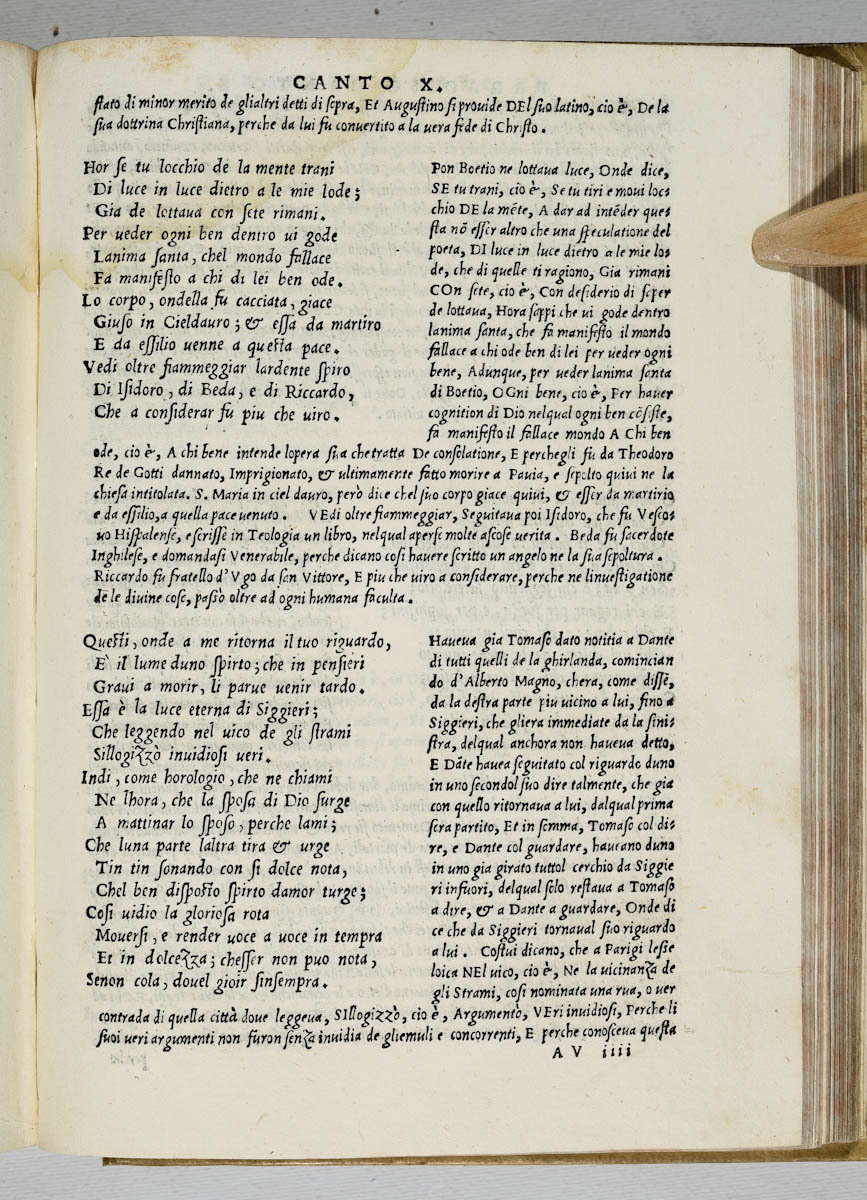 CANTO X.
stato di minor merito de glialtri detti di sopra, Et Augustino si prouide DEl suo latino, cio è, De la
sua dottrina Christiana, perche da lui fu conuertito a la uera fede di Christo.
Hor se tu locchio de la mente trani
Di luce in luce dietro a le mie lode;
Gia de lottaua con sete rimani.
Per ueder ogni ben dentro ui gode
Lanima santa, chel mondo fallace
Fa manifesto a chi di lei ben ode.
Lo corpo, ondella fu cacciata, giace
Giuso in Cieldauro; & essa da martiro
E da essilio uenne a questa pace.
Vedi oltre fiammeggiar lardente spiro
Di Isidoro, di Beda, e di Riccardo,
Che a considerar fu piu che uiro.
Pon Boetio ne lottaua luce, Onde dice,
SE tu trani, cio è, Se tu tiri e moui loc=
chio DE la mẽte, A dar ad intẽder que=
sta nõ esser altro che una speculatione del
poeta, DI luce in luce dietro a le mie lo=
de, che di quelle ti ragiono, Gia rimani
COn sete, cio è, Con desiderio di saper
de lottaua, Hora sappi che ui gode dentro
lanima santa, che fa manifesto il mondo
fallace a chi ode ben di lei per ueder ogni
bene, Adunque, per ueder lanima santa
di Boetio, OGni bene, cio è, Per hauer
cognition di Dio nelqual ogni ben cõsiste,
fa manifesto il fallace mondo A Chi ben
ode, cio è, A chi bene intende lopera sua che tratta De consolatione, E perchegli fu da Theodoro
Re de Gotti dannato, Imprigionato, & ultimamente fatto morire a Pauia, e sepolto quiui ne la
chiesa intitolata. S. Maria in ciel dauro, però dice chel suo corpo giace quiui, & esser da martirio
e da essilio, a quella pace uenuto. VEdi oltre fiammeggiar, Seguitaua poi Isidoro, che fu Vesco=
uo Hispalense, e scrisse in Teologia un libro, nelqual aperse molte ascose uerita. Beda fu sacerdote
Inghilese, e domandasi Venerabile, perche dicano cosi hauere scritto un angelo ne la sua sepoltura.
Riccardo fu fratello d'Vgo da san Vittore, E piu che uiro a considerare, perche ne linuestigatione
de le diuine cose, passò oltre ad ogni humana faculta.
Questi, onde a me ritorna il tuo riguardo,
E' il lume duno spirto; che in pensieri
Graui a morir, li parue uenir tardo.
Essa è la luce eterna di Siggieri;
Che leggendo nel uico de gli strami
Sillogizzò inuidiosi ueri.
Indi, come horologio, che ne chiami
Ne lhora, che la sposa di Dio surge
A mattinar lo sposo, perche lami;
Che luna parte laltra tira & urge
Tin tin sonando con si dolce nota,
Chel ben disposto spirto damor turge;
Cosi uidio la gloriosa rota
Mouersi, e render uoce a uoce in tempra
Et in dolcezza; chesser non puo nota,
Senon cola, douel gioir sinsempra.
Haueua gia Tomaso dato notitia a Dante
di tutti quelli de la ghirlanda, comincian
do d'Alberto Magno, chera, come disse,
da la destra parte piu uicino a lui, fino a
Siggieri, che gliera immediate da la sini=
stra, delqual anchora non haueua detto,
E Dãte hauea seguitato col riguardo duno
in uno secondol suo dire talmente, che gia
con quello ritornaua a lui, dalqual prima
sera partito, Et in somma, Tomaso col di=
re, e Dante col guardare, haueano duno
in uno gia girato tuttol cerchio da Siggie
ri infuori, delqual solo restaua a Tomaso
a dire, & a Dante a guardare, Onde di
ce che da Siggieri tornaual suo riguardo
a lui. Costui dicano, che a Parigi lesse
loica NEl uico, cio è, Ne la uicinanza de
gli Strami, cosi nominata una rua, o uer
contrada di quella città doue leggeua, SIllogizzò, cio è, Argumentò, VEri inuidiosi, Perche li
suoi ueri argumenti non furon senza inuidia de gliemuli e concorrenti, E perche conosceua questa
A V iiii